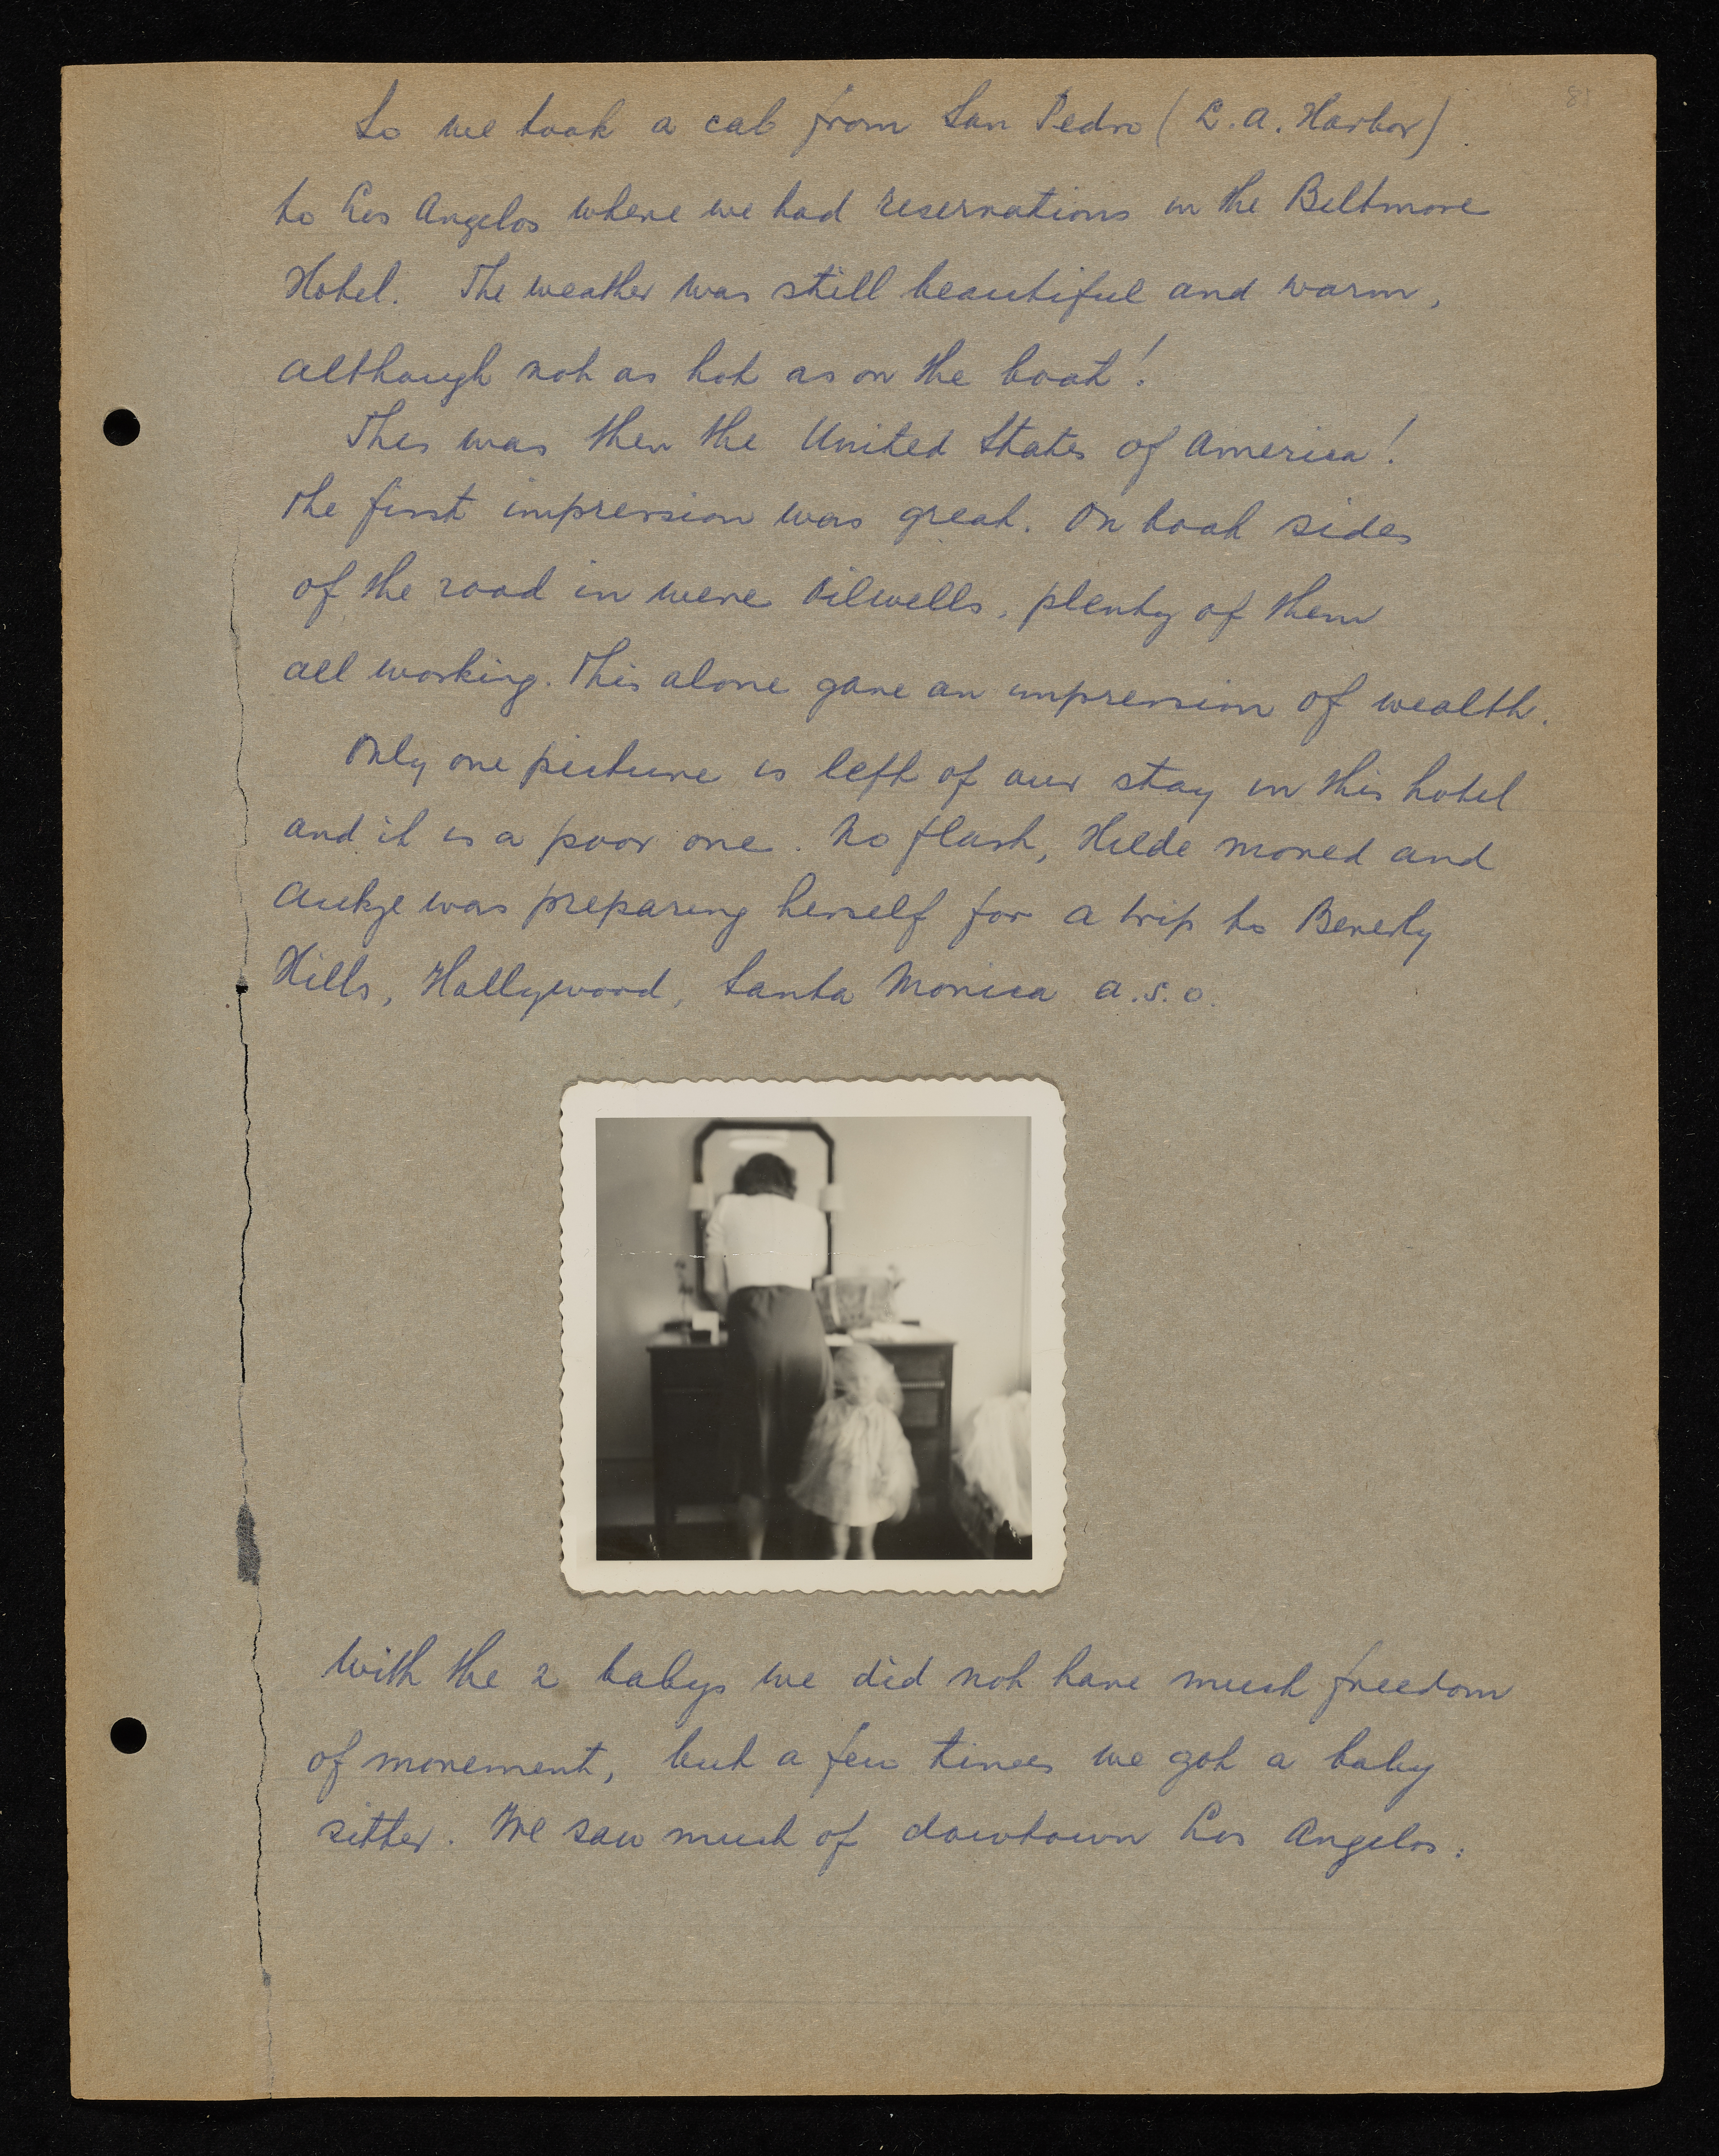 So we took a cab from San Pedro (L.A. Harbor)
to Los Angelos where we had reservations in the Biltmore
Hotel. The weather was still beautiful and warm,
although not as hot as on the boat!
This was then the United States of America!
The first impression was great. On boah sides
of the road in were Oilwells, plenty of them
all working. This alone gave an impression of wealth.
Only one picture is left of our stay in this hotel
and it is a poor one. No flash, Hilde moved and
Aukje was preparing herself for a trip to Beverly
Hills, Hollywood, Santa Monica a.s.o.
With the 2 babys we did not have much freedom
of movement, but a few times we got a baby
sitter. We saw much of dowtown Los Angelos.